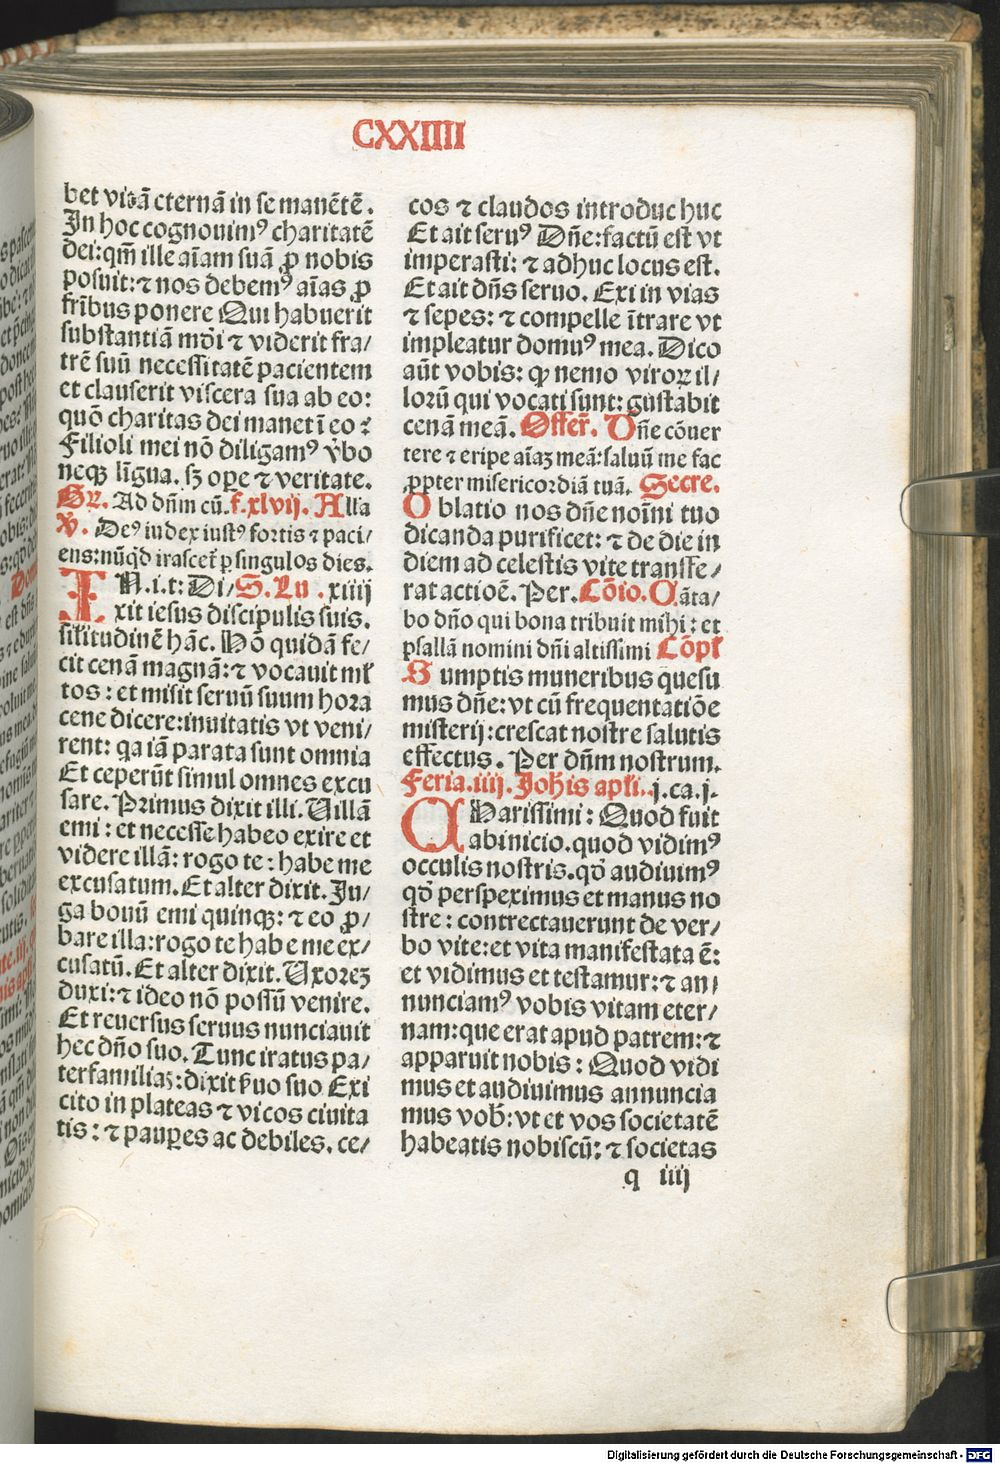 CXXIIII
bet vitā eternā in se manētē.
In hoc cognouimꝰ charitatē
dei: qm̄ ille aīam suā ꝓ nobis
posuit: ⁊ nos debemꝰ aīas ꝓ
fr̄ibus ponere Qui habuerit
substantiā mōi ⁊ viderit fra/
trē suū necessitatē pacientem
et clauserit viscera sua ab eo:
quō charitas dei manet ī eo ⁊
Filioli mei nō diligamꝰ v̄bo
neqꝫ lingua. sꝫ oꝑe ⁊ veritate.
Gr̄. Ad dn̄m cū. f. xlvij. Alla
V̄. Deꝰ iudex iustꝰ fortis ⁊ paci/
ens: nūqd irascet̄ ꝑ singulos dies.
IN. i. t: Di/ S. Lu. xiiij
xit iesus discipulis suis.
silitudinē hāc. Hō quidā fe/
cit cenā magnā: ⁊ vocauit ml̄
tos: et misit seruū suum hora
cene dicere: inuitatis vt veni/
rent: qa iā parata sunt omnia
Et ceperūt simul omnes excu
sare. Primus dixit illi. Uillā
emi: et necesse habeo exire et
videre illā: rogo te: habe me
excusatum. Et alter dixit. Ju/
ga bouū emi quinqꝫ: ⁊ eo ꝓ/
bare illa: rogo te habe me ex/
cusatū. Et alter dixit. Uxoreꝫ
duxi: ⁊ ideo nō possū venire.
Et reuersus seruus nunciauit
hec dn̄o suo. Tunc iratus pa/
terfamilias: dixit s̄uo suo Exi
cito in plateas ⁊ vicos ciuita
tis: ⁊ pauꝑes ac debiles. ce/
cos ⁊ claudos introduc huc
Et ait seruꝰ Dn̄e: factū est vt
imperasti: ⁊ adhuc locus est.
Et ait dn̄s seruo. Exi in vias
⁊ sepes: ⁊ compelle ītrare vt
impleatur domuꝰ mea. Dico
aūt vobis: qꝫ nemo viroꝝ il/
lorū qui vocati sunt: gustabit
cenā meā. Offer̄. Dn̄e cōuer
tere ⁊ eripe aīaꝫ meā: saluū me fac
ꝓpter misericordiā tuā. Secre.
Oblatio nos dn̄e noīni tuo
dicanda purificet: ⁊ de die in
diem ad celestis vite transfe/
rat actioē. Per. Cōio. Cāta/
bo dn̄o qui bona tribuit mihi: et
psallā nomini dn̄i altissimi Cōpl̄
Sumptis muneribus quesu
mus dn̄e: vt cū frequentatiōe
misterij: crescat nostre salutis
effectus. Per dn̄m nostrum.
Feria. iiij. Joh̄is apl̄i. j. ca. j.
CHarissimi: Quod fuit
ab inicio. quod vidimꝰ
occulis nostris. qō audiuimꝰ
qō perspeximus et manus no
stre: contrectauerunt de ver/
bo vite: et vita manifestata ē:
et vidimus et testamur: ⁊ an/
nunciamꝰ vobis vitam eter/
nam: que erat apud patrem: ⁊
apparuit nobis: Quod vidi
mus et audiuimus annuncia
mus vob̄: vt et vos societatē
habeatis nobiscū: ⁊ societas
q iiij
Digitalisierung gefördert durch die Deutsche Forschungsgemeinschaft - DFG